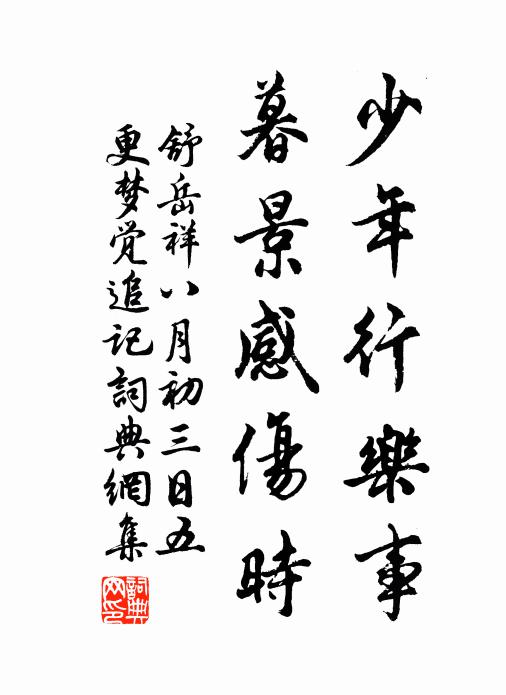 少年行樂事
暮景感傷時
舒岳祥八月初三日五
更梦觉追记詞典網集
詞典網印